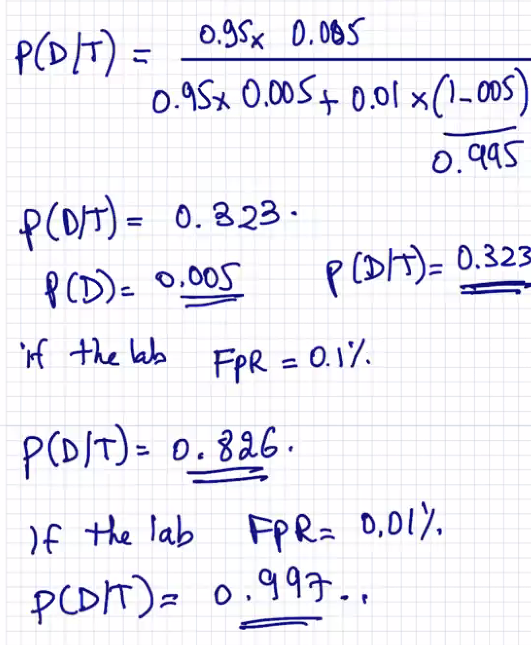 P(D/T) = 0.95x 0.005
0.95x 0.005 + 0.01 x (1-005)
0.995
P(D/T) = 0.323.
P(D) = 0.005 P(D/T) = 0.323
if the lab FPR = 0.1%.
P(D/T) = 0.826.
If the lab FPR = 0.01%.
P(D/T) = 0.997..